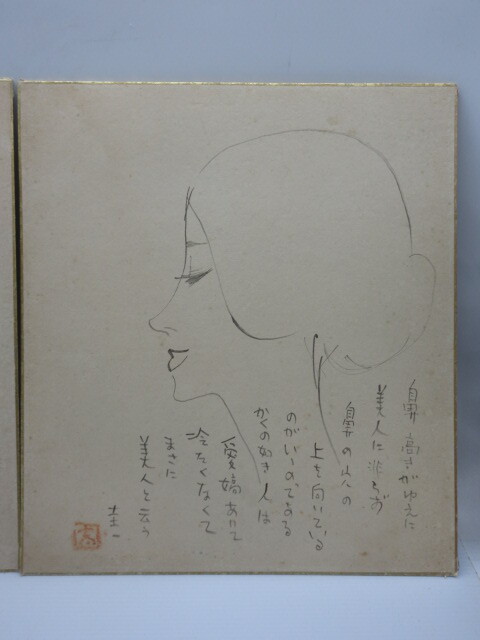 鼻高きがゆえに
美人に非ず
鼻の穴の
上を向いている
のがいゝのである
かくの如き人は
愛嬌ありて
冷たくなくて
まさに
美人と云う
圭一